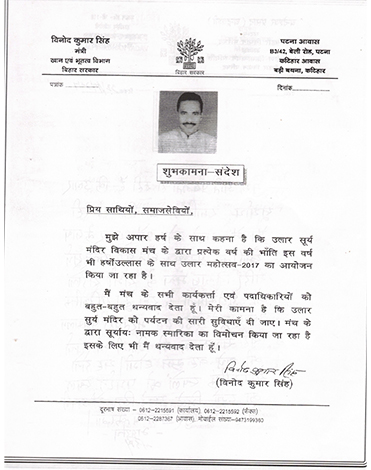 विनोद कुमार सिंह
मंत्री
खान एवं भूतत्व विभाग
बिहार सरकार
बिहार सरकार
पटना आवास
B3/42, बेली रोड, पटना
कटिहार आवास
बड़ी बथना, कटिहार
पत्रांक
दिनांक
शुभकामना-संदेश
प्रिय साथियों, समाजसेवियों,
मुझे अपार हर्ष के साथ कहना है कि उलार सूर्य
मंदिर विकास मंच के द्वारा प्रत्येक वर्ष की भाँति इस वर्ष
भी हर्षोउल्लास के साथ उलार महोत्सव-2017 का आयोजन
किया जा रहा है।
मैं मंच के सभी कार्यकर्त्ता एवं पदाधिकारियों को
बहुत-बहुत धन्यवाद देता हूँ। मेरी कामना है कि उलार
सुर्य मंदिर को पर्यटन की सारी सुविधाएँ दी जाए। मंच के
द्वारा सूर्यायः नामक स्मारिका का विमोचन किया जा रहा है
इसके लिए भी मैं धन्यवाद देता हूँ।
विनोद कुमार सिंह
(विनोद कुमार सिंह)
दुरभाष संख्या - 0612-2215591 (कार्यालय), 0612-2215592 (फैक्स)
0612-2287357 (आवास), मोबाईल संख्या-9473199360